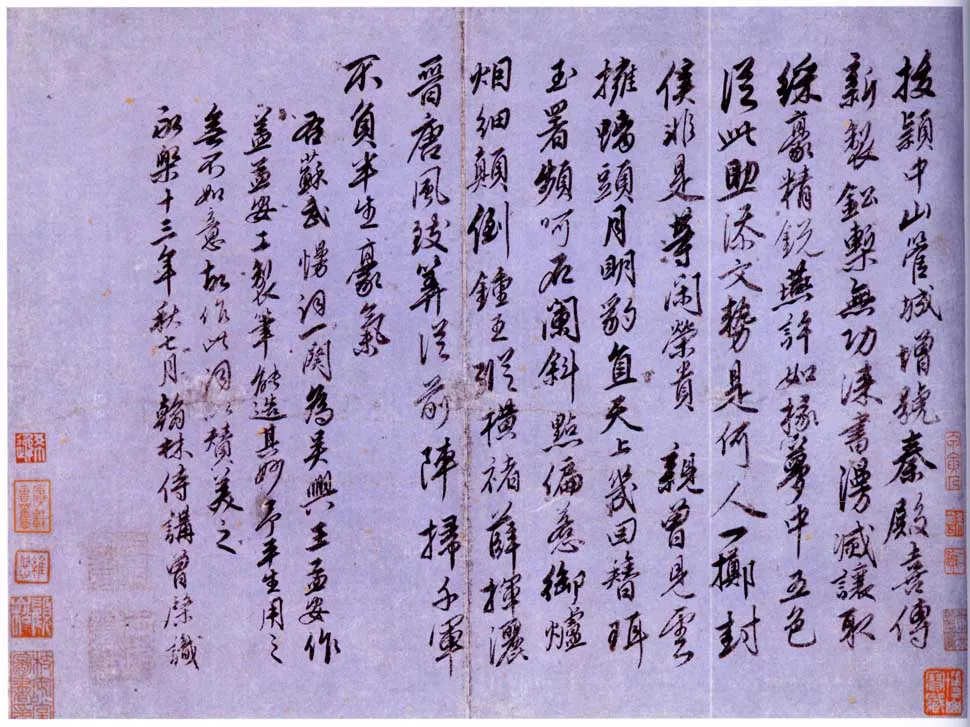 拔穎中山管城增號秦殿喜傳
新製鈆槧無功漆書漫滅讓取
綵豪精銳燕許如椽夢中五色
從此助添文勢是何人一擲封
侯非是等閑榮貴 親曾見雲
擁螭頭月明豹直天上幾回簪珥
玉署頻呵右闌斜點偏惹御爐
烟細顛倒鍾王縱橫褚薛揮灑
晉唐風致筭從前陣掃千軍
不負半生豪氣
右蘇武慢詞一闋為吳興王孟安作
蓋孟安工製筆能造其妙予平生用之
無不如意故作此詞以贊美之
永樂十三年秋七月翰林侍講曾棨識